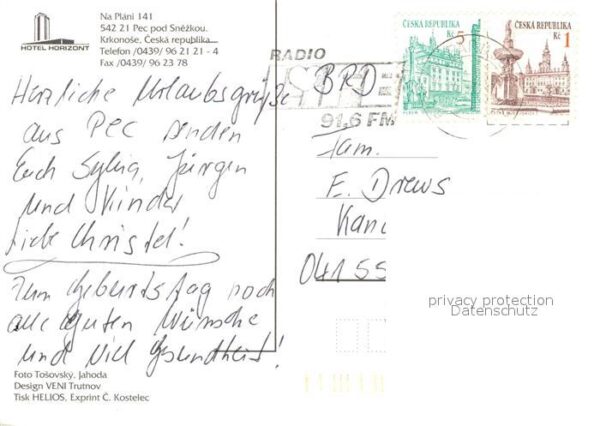 HOTEL HORIZONT
Na Pláni 141
542 21 Pec pod Sněžkou.
Krkonoše, Česká republika
Telefon /0439/ 96 21 21 - 4
Fax /0439/ 96 23 78
Herzliche Urlaubsgrüße
aus PEC senden
Euch Sylvia, Jürgen
und Kinder
Liebe Christel!
Zum Geburtstag noch
alle guten Wünsche
und viel Gesundheit!
Foto Tošovský, Jahoda
Design VENI Trutnov
Tisk HELIOS, Exprint Č. Kostelec
RADIO
91,6 FM
ČESKÁ REPUBLIKA
Kč 5
ČESKÁ REPUBLIKA
Kč 1
BRD
Fam.
E. Drews
04155
privacy protection
Datenschutz